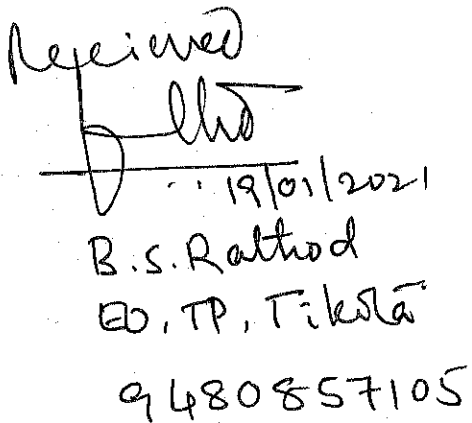 Received
19/01/2021
B.S. Rathod
EO, TP, Tikota
9480857105